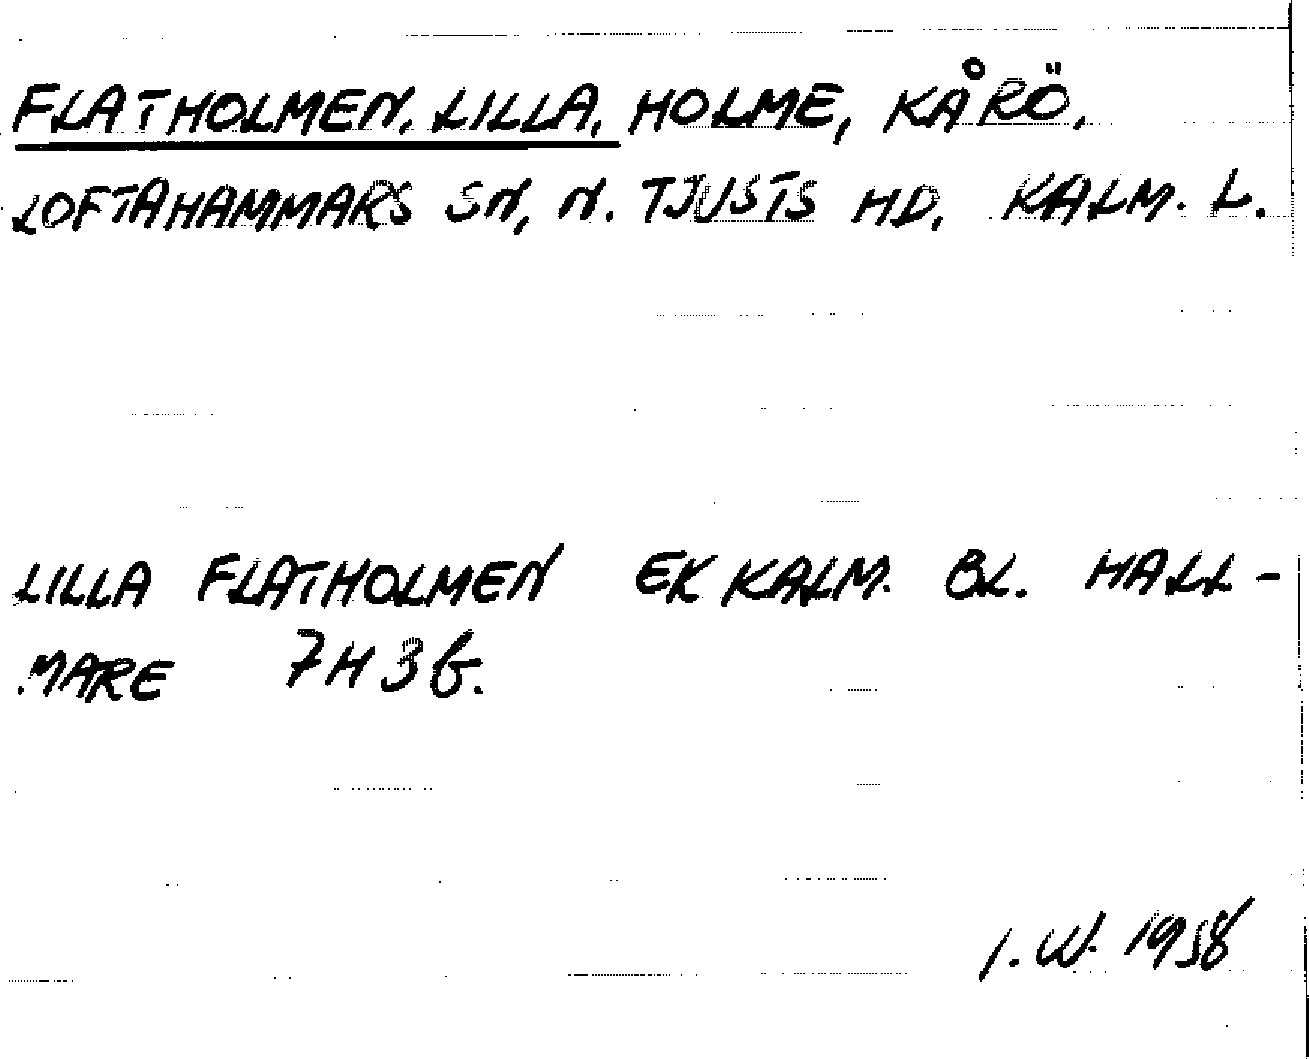 FLATHOLMEN, LILLA, HOLME, KÅRÖ,
LOFTAHAMMARS SN, N. TJUSTS HD, KALM. L.
LILLA FLATHOLMEN EK KALM. BL. HALL-
MARE 7H3b.
I. W. 1958